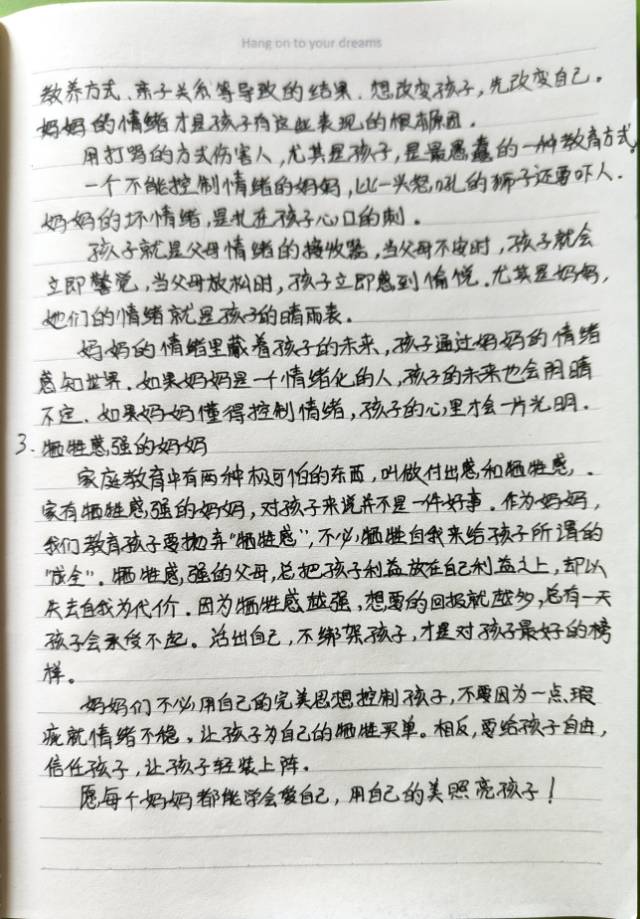 Hang on to your dreams
教养方式、亲子关系等导致的结果. 想改变孩子, 先改变自己。
妈妈的情绪才是孩子有这些表现的根本原因.
用打骂的方式伤害人, 尤其是孩子, 是最愚蠢的一种教育方式。
一个不能控制情绪的妈妈, 比一头怒吼的狮子还要吓人.
妈妈的坏情绪, 是扎在孩子心口的刺.
孩子就是父母情绪的接收器, 当父母不安时, 孩子就会
立即警觉, 当父母放松时, 孩子立即感到愉悦. 尤其是妈妈,
她们的情绪就是孩子的晴雨表.
妈妈的情绪里藏着孩子的未来, 孩子通过妈妈的情绪
感知世界. 如果妈妈是一个情绪化的人, 孩子的未来也会阴晴
不定. 如果妈妈懂得控制情绪, 孩子的心里才会一片光明.
3. 牺牲感强的妈妈
家庭教育中有两种极可怕的东西, 叫做付出感和牺牲感.
家有牺牲感强的妈妈, 对孩子来说并不是一件好事. 作为妈妈,
我们教育孩子要抛弃“牺牲感”, 不必牺牲自我来给孩子所谓的
“成全”. 牺牲感强的父母, 总把孩子利益放在自己利益之上, 却以
失去自我为代价. 因为牺牲感越强, 想要的回报就越多, 总有一天
孩子会承受不起。活出自己, 不绑架孩子, 才是对孩子最好的榜
样。
妈妈们不必用自己的完美思想控制孩子, 不要因为一点瑕
疵就情绪不稳, 让孩子为自己的牺牲买单。相反, 要给孩子自由,
信任孩子, 让孩子轻装上阵.
愿每个妈妈都能学会爱自己, 用自己的美照亮孩子!